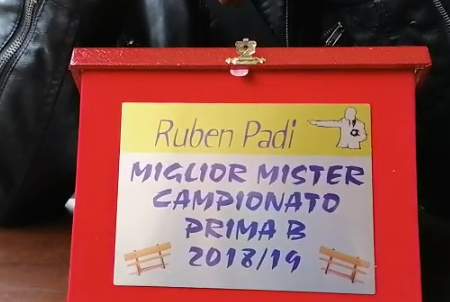 Ruben Padi
MIGLIOR MISTER
CAMPIONATO
PRIMA B
2018/19